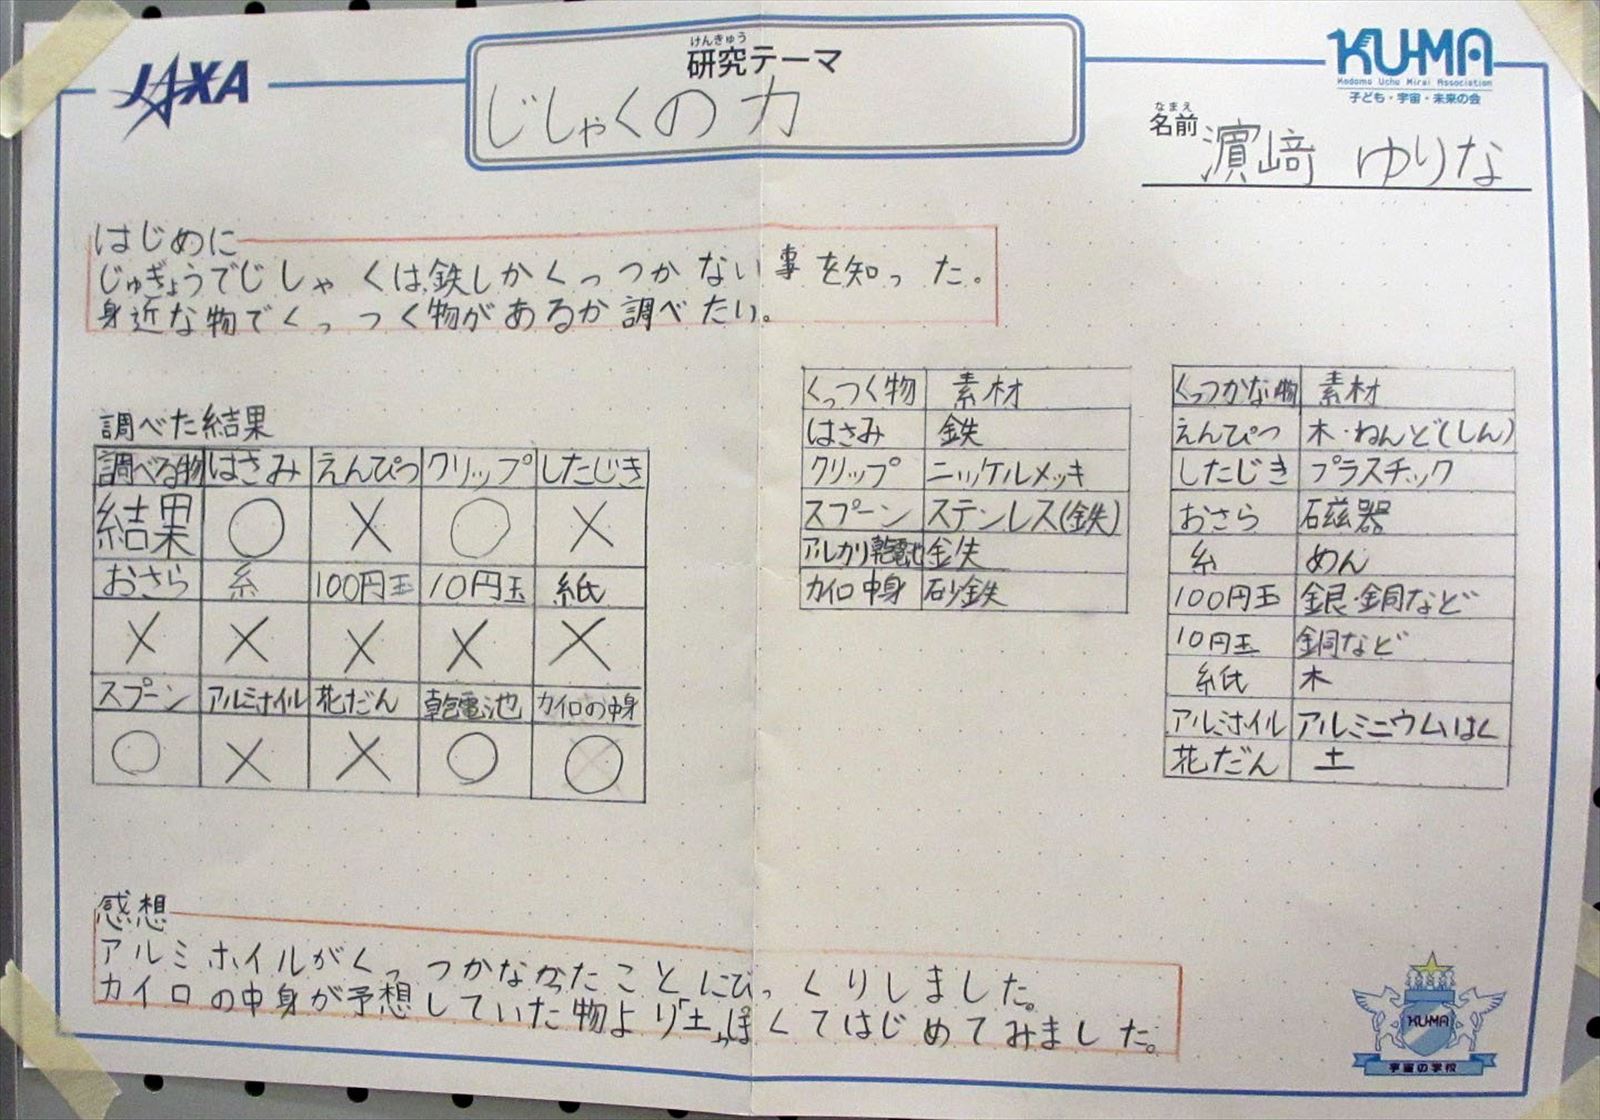 JAXA
けんきゅう
研究テーマ
じしゃくの力
KU-MA
Kodomo Uchu Mirai Association
子ども・宇宙・未来の会
なまえ
名前 濵﨑 ゆりな
はじめに
じゅぎょうでじしゃくは鉄しかくっつかない事を知った。
身近な物でくっつく物があるか調べたい。
調べた結果
調べる物 はさみ えんぴつ クリップ したじき
結果 ○ × ○ ×
おさら 糸 100円玉 10円玉 紙
× × × × ×
スプーン アルミホイル 花だん 乾電池 カイロの中身
○ × × ○ ○
くっつく物 素材
はさみ 鉄
クリップ ニッケルメッキ
スプーン ステンレス(鉄)
アルカリ乾電池 鉄
カイロ中身 砂鉄
くっつかな物 素材
えんぴつ 木・ねんど(しん)
したじき プラスチック
おさら 磁器
糸 めん
100円玉 銀・銅など
10円玉 銅など
紙 木
アルミホイル アルミニウムはく
花だん 土
感想
アルミホイルがくっつかなかったことにびっくりしました。
カイロの中身が予想していた物より「土」っぽくてはじめてみました。
KU-MA
宇宙の学校